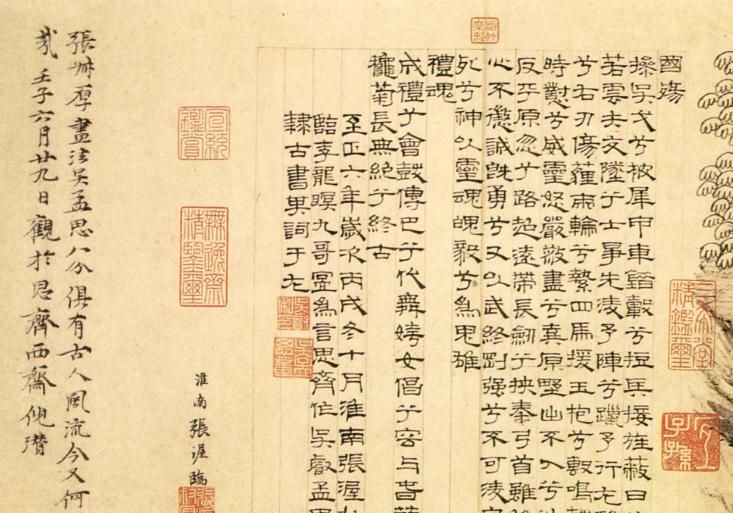 國殤
操吳戈兮被犀甲車錯轂兮短兵接旌蔽日
若雲矢交墜兮士爭先淩予陣兮躐予行左
兮右刃傷薶兩輪兮縶四馬援玉枹兮擊鳴
時懟兮威靈怒嚴殺盡兮棄原壄出不入兮
反平原忽兮路超遠帶長劍兮挾秦弓首雖
心不懲誠旣勇兮又以武終剛强兮不可淩
死兮神以靈魂魄毅兮爲鬼雄
禮魂
成禮兮會鼓傳巴兮代舞姱女倡兮容与春
龝菊長無絶兮終古
至正六年歲次丙戌冬十月淮南張渥
臨李龍瞑九哥圖爲言思齊作吳叡孟思
隸古書其詞于左
淮南張渥臨
張叔厚畫法吳孟思八分俱有古人風流今又何
哉壬子六月廿九日觀於思齊西齋倪瓚
三希堂精鑑璽
宜子孫
宣統鑑賞
無逸齋精鑒璽